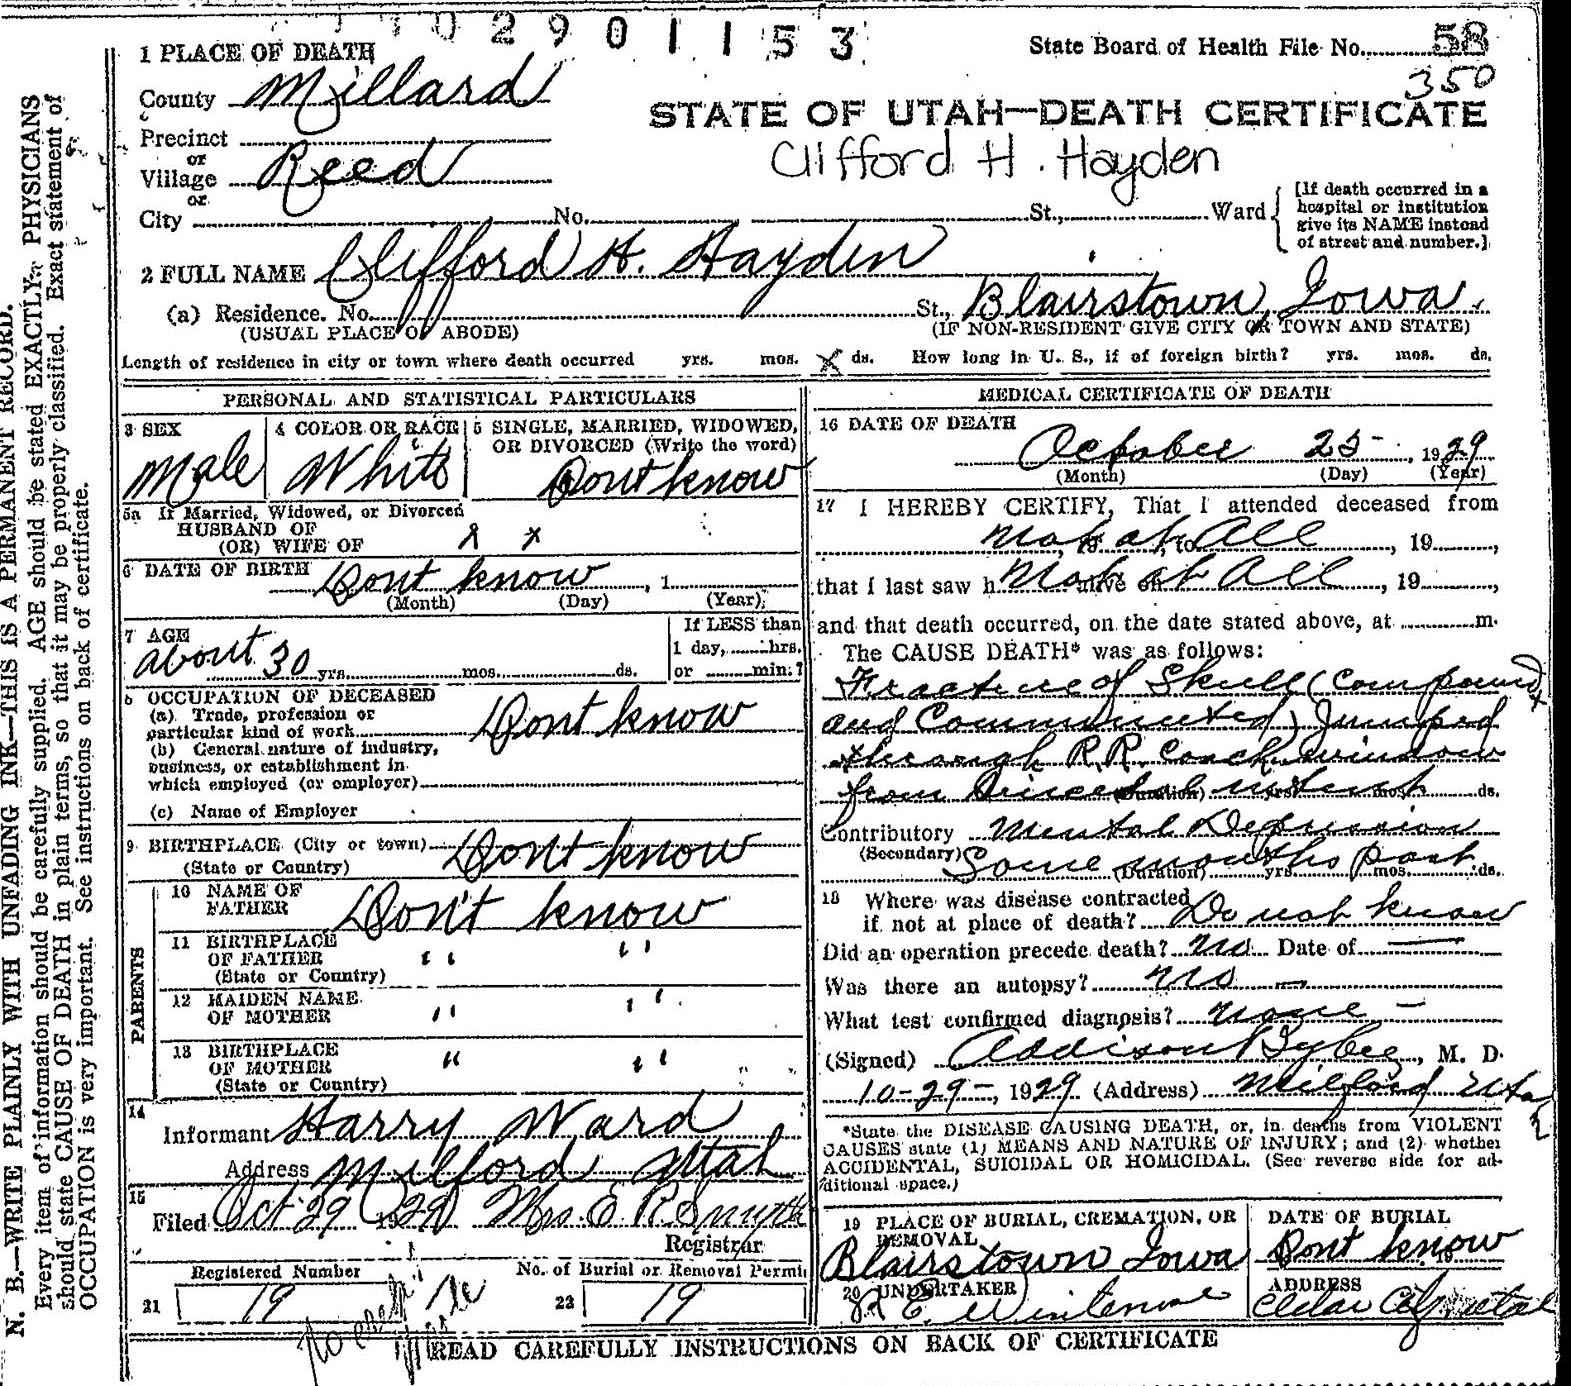 0 2 9 0 1 1 5 3
State Board of Health File No. 58
350
1 PLACE OF DEATH
County Millard
STATE OF UTAH—DEATH CERTIFICATE
Clifford H. Hayden
Precinct
or
Village Reed
or
City No. St., Ward
[If death occurred in a
hospital or institution
give its NAME instead
of street and number.]
2 FULL NAME Clifford H. Hayden
(a) Residence. No. St., Blairstown, Iowa.
(USUAL PLACE OF ABODE) (IF NON-RESIDENT GIVE CITY OR TOWN AND STATE)
Length of residence in city or town where death occurred yrs. mos. x ds. How long in U. S., if of foreign birth? yrs. mos. ds.
PERSONAL AND STATISTICAL PARTICULARS
3 SEX
Male
4 COLOR OR RACE
White
5 SINGLE, MARRIED, WIDOWED,
OR DIVORCED (Write the word)
Dont know
5a If Married, Widowed, or Divorced
HUSBAND OF
(OR) WIFE OF x x
6 DATE OF BIRTH Dont know, 1
(Month) (Day) (Year)
7 AGE
about 30 yrs. mos. ds.
If LESS than
1 day, hrs.
or min.?
8 OCCUPATION OF DECEASED
(a) Trade, profession or
particular kind of work Dont know
(b) General nature of industry,
business, or establishment in
which employed (or employer)
(c) Name of Employer
9 BIRTHPLACE (City or town) Dont know
(State or Country)
PARENTS
10 NAME OF
FATHER Don't know
11 BIRTHPLACE
OF FATHER " "
(State or Country)
12 MAIDEN NAME
OF MOTHER " "
13 BIRTHPLACE
OF MOTHER " "
(State or Country)
14
Informant Harry Ward
Address Milford Utah
15
Filed Oct 29 1929 Mrs. E. R. Smyth
Registrar
Registered Number
21 19
No. of Burial or Removal Permit
22 19
MEDICAL CERTIFICATE OF DEATH
16 DATE OF DEATH
October 25, 1929
(Month) (Day) (Year)
17 I HEREBY CERTIFY, That I attended deceased from
Not at All, 19 ,
that I last saw h Not at All alive on, 19 ,
and that death occurred, on the date stated above, at m.
The CAUSE DEATH* was as follows:
Fracture of Skull (Compound
and Comminuted) Jumped
through R.R. Coach window
from
(Duration) yrs. mos. ds.
Contributory Mental Depression
(Secondary) Some months past
(Duration) yrs. mos. ds.
18 Where was disease contracted
if not at place of death? Do not know
Did an operation precede death? no Date of —
Was there an autopsy? no —
What test confirmed diagnosis? none —
(Signed) Addison Bybee, M. D.
10-29-, 1929 (Address) Milford Utah
*State the DISEASE CAUSING DEATH, or, in deaths from VIOLENT
CAUSES state (1) MEANS AND NATURE OF INJURY; and (2) whether
ACCIDENTAL, SUICIDAL OR HOMICIDAL. (See reverse side for ad-
ditional space.)
19 PLACE OF BURIAL, CREMATION, OR
REMOVAL
Blairstown Iowa
DATE OF BURIAL
Dont know 19
20 UNDERTAKER
ADDRESS
Cedar City Utah
READ CAREFULLY INSTRUCTIONS ON BACK OF CERTIFICATE
N. B.—WRITE PLAINLY WITH UNFADING INK—THIS IS A PERMANENT RECORD.
Every item of information should be carefully supplied. AGE should be stated EXACTLY. PHYSICIANS
should state CAUSE OF DEATH in plain terms, so that it may be properly classified. Exact statement of
OCCUPATION is very important. See instructions on back of certificate.